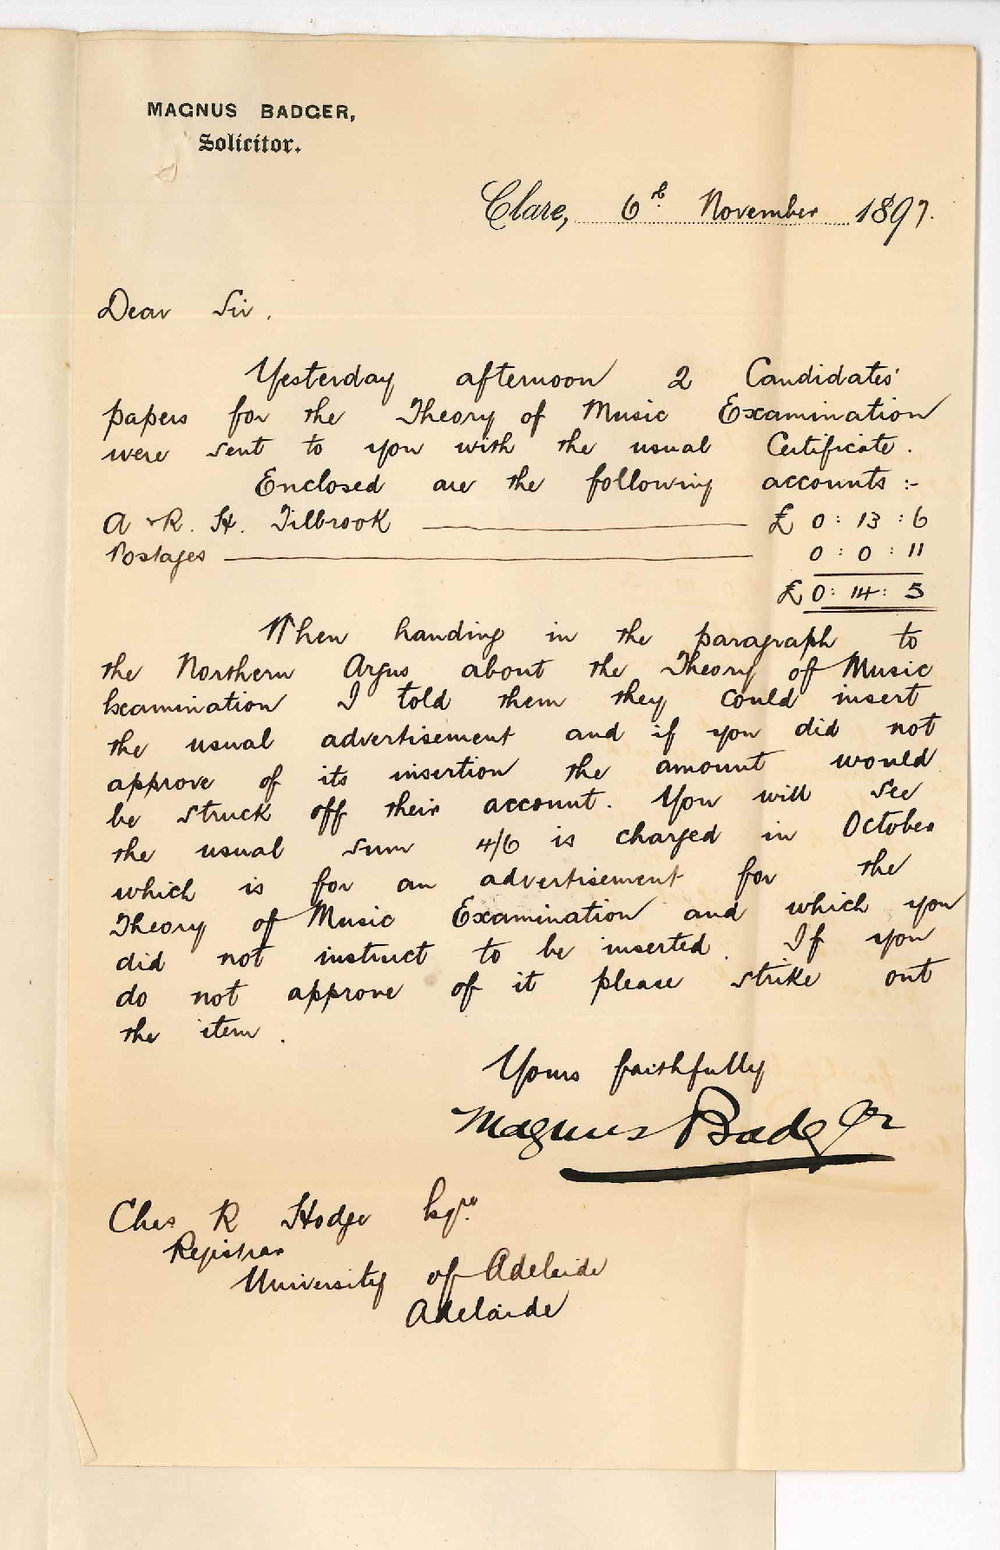 MAGNUS BADGER,
Solicitor.
Clare, 6th November 1897.
Dear Sir.
Yesterday afternoon 2 Candidates'
papers for the Theory of Music Examination
were sent to you with the usual Certificate.
Enclosed are the following accounts :-
A & R. H. Tilbrook £ 0 : 13 : 6
Postages 0 : 0 : 11
£ 0 : 14 : 5
When handing in the paragraph to
the Northern Argus about the Theory of Music
Examination I told them they could insert
the usual advertisement and if you did not
approve of its insertion the amount would
be struck off their account. You will see
the usual sum 4/6 is charged in October
which is for an advertisement for the
Theory of Music Examination and which you
did not instruct to be inserted. If you
do not approve of it please strike out
the item.
Yours faithfully
Magnus Badger
Chas R Hodge Esqre
Registrar
University of Adelaide
Adelaide